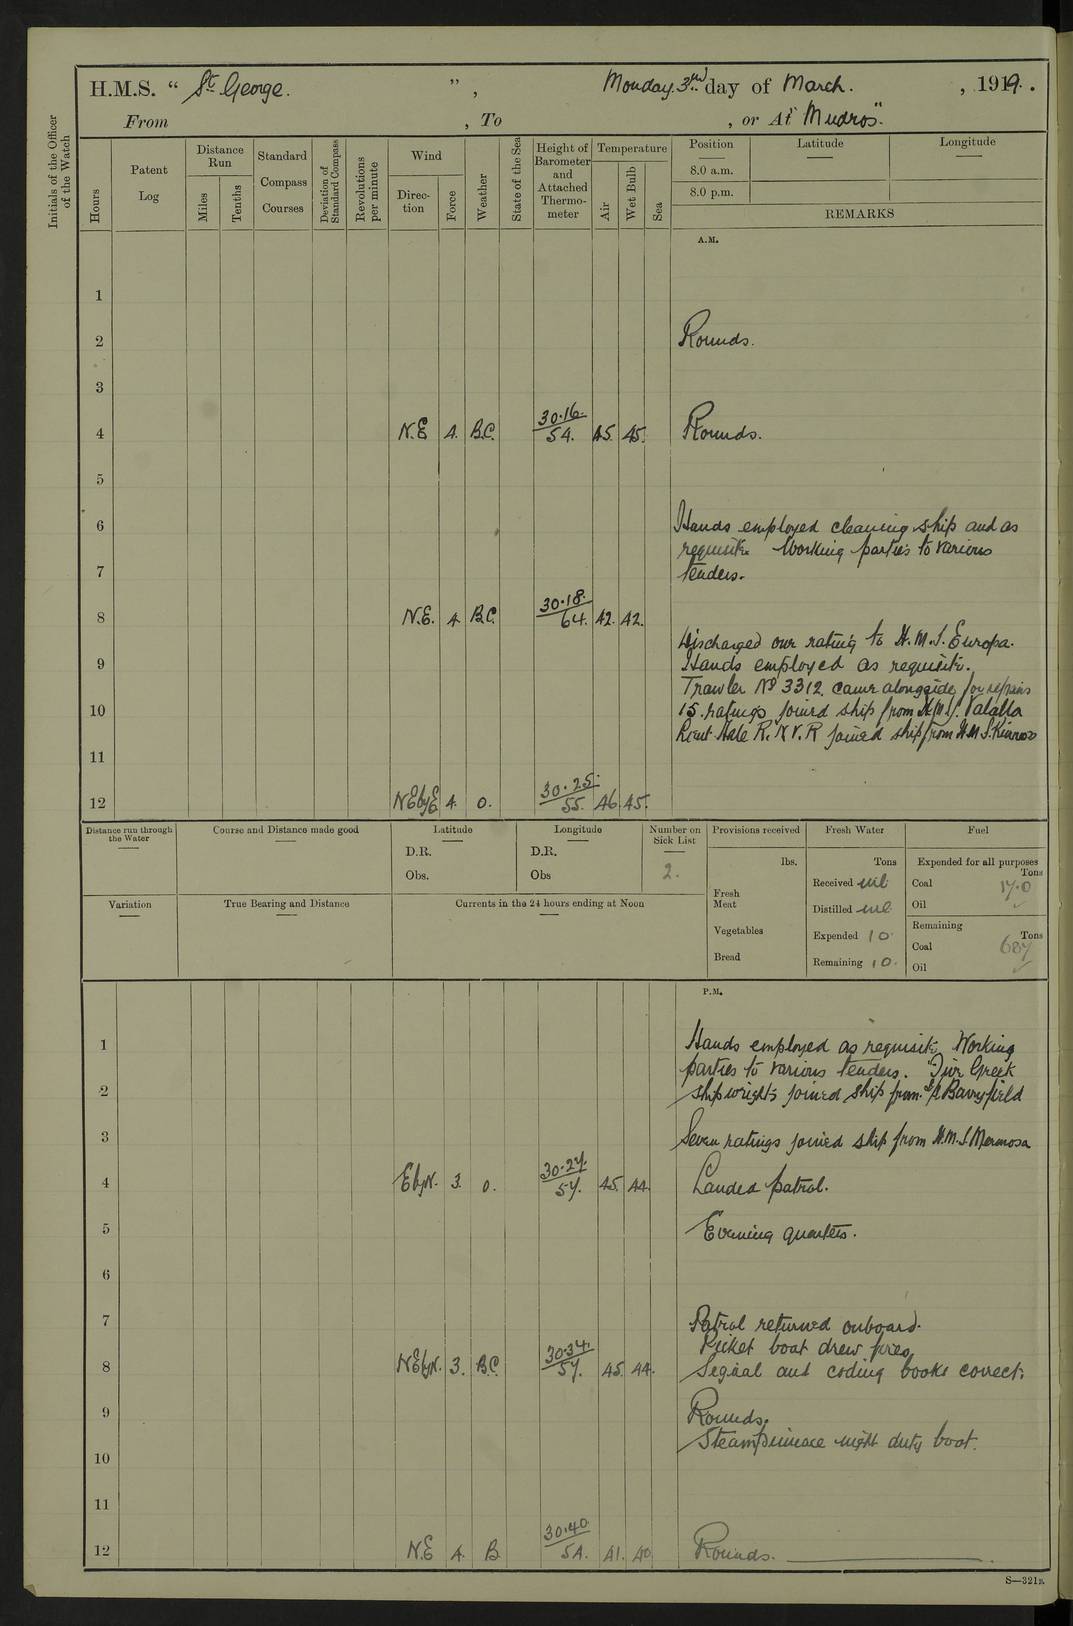 H.M.S. " St George. ", Monday 3rd day of March. , 1919.
From , To , or At "Mudros".
Initials of the Officer of the Watch
Hours
Patent Log
Distance Run
Miles
Tenths
Standard Compass Courses
Deviation of Standard Compass
Revolutions per minute
Wind
Direction
Force
Weather
State of the Sea
Height of Barometer and Attached Thermometer
Temperature
Air
Wet Bulb
Sea
Position Latitude Longitude
8.0 a.m.
8.0 p.m.
REMARKS
A.M.
1
2 Rounds.
3
4 N.E 4. B.C. 30.16. 54. 45. 45. Rounds.
5
6 Hands employed cleaning ship and as
requisite Working parties to various
7 tenders.
8 N.E. 4 B.C. 30.18. 64. 42. 42.
Discharged one rating to H.M.S. Europa.
9 Hands employed as requisite.
Trawler No 3312. came alongside for repairs
10 15. ratings joined ship from H.M.S. Valalla
Lieut Hale R.N.V.R joined ship from H.M.S. Kinross
11
12 NEbyE 4. O. 30.25. 55. 46. 45.
Distance run through the Water
Course and Distance made good
Latitude
D.R.
Obs.
Longitude
D.R.
Obs
Number on Sick List
2.
Provisions received
lbs.
Fresh Meat
Vegetables
Bread
Fresh Water
Tons
Received nil
Distilled nil
Expended 10
Remaining 10.
Fuel
Expended for all purposes
Tons
Coal 17.0
Oil ✓
Remaining
Tons
Coal 687
Oil ✓
Variation
True Bearing and Distance
Currents in the 24 hours ending at Noon
P.M.
1 Hands employed as requisite Working
parties to various tenders. Five Greek
2 shipwrights joined ship from S/S Barryfield
3 Seven ratings joined ship from H.M.S. Mermosa
4 EbyN. 3. O. 30.27. 57. 45. 44. Landed patrol.
5 Evening quarters.
6
7 Patrol returned onboard.
Picket boat drew fires
8 NEbyN. 3. B.C. 30.34. 57. 45. 44. Signal and coding books correct.
9 Rounds.
Steampinnace night duty boat.
10
11
12 N.E 4. B 30.40. 54. 41. 40 Rounds.
S—321B.